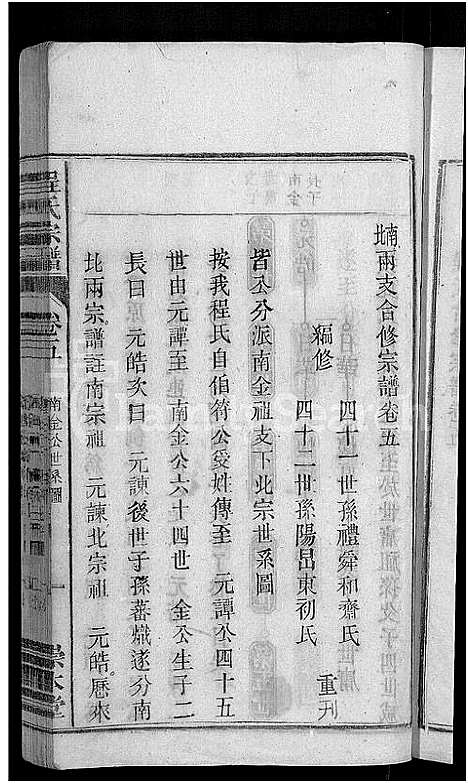 南北兩支合修宗譜卷五
四十一世孫禮舜和齋氏
編修 重刊
四十二世孫陽昺東初氏
皆公分派南金祖支下北宗世系圖
按我程氏自伯符公受姓傳至 元譚公四十五
世由元譚至 南金公六十四世 金公生子二
長曰 元皓次曰 元諫後世子孫蕃熾遂分南
北兩宗譜註南宗祖 元諫北宗祖 元皓歷來
程氏宗譜
卷五
南金公世系圖
一